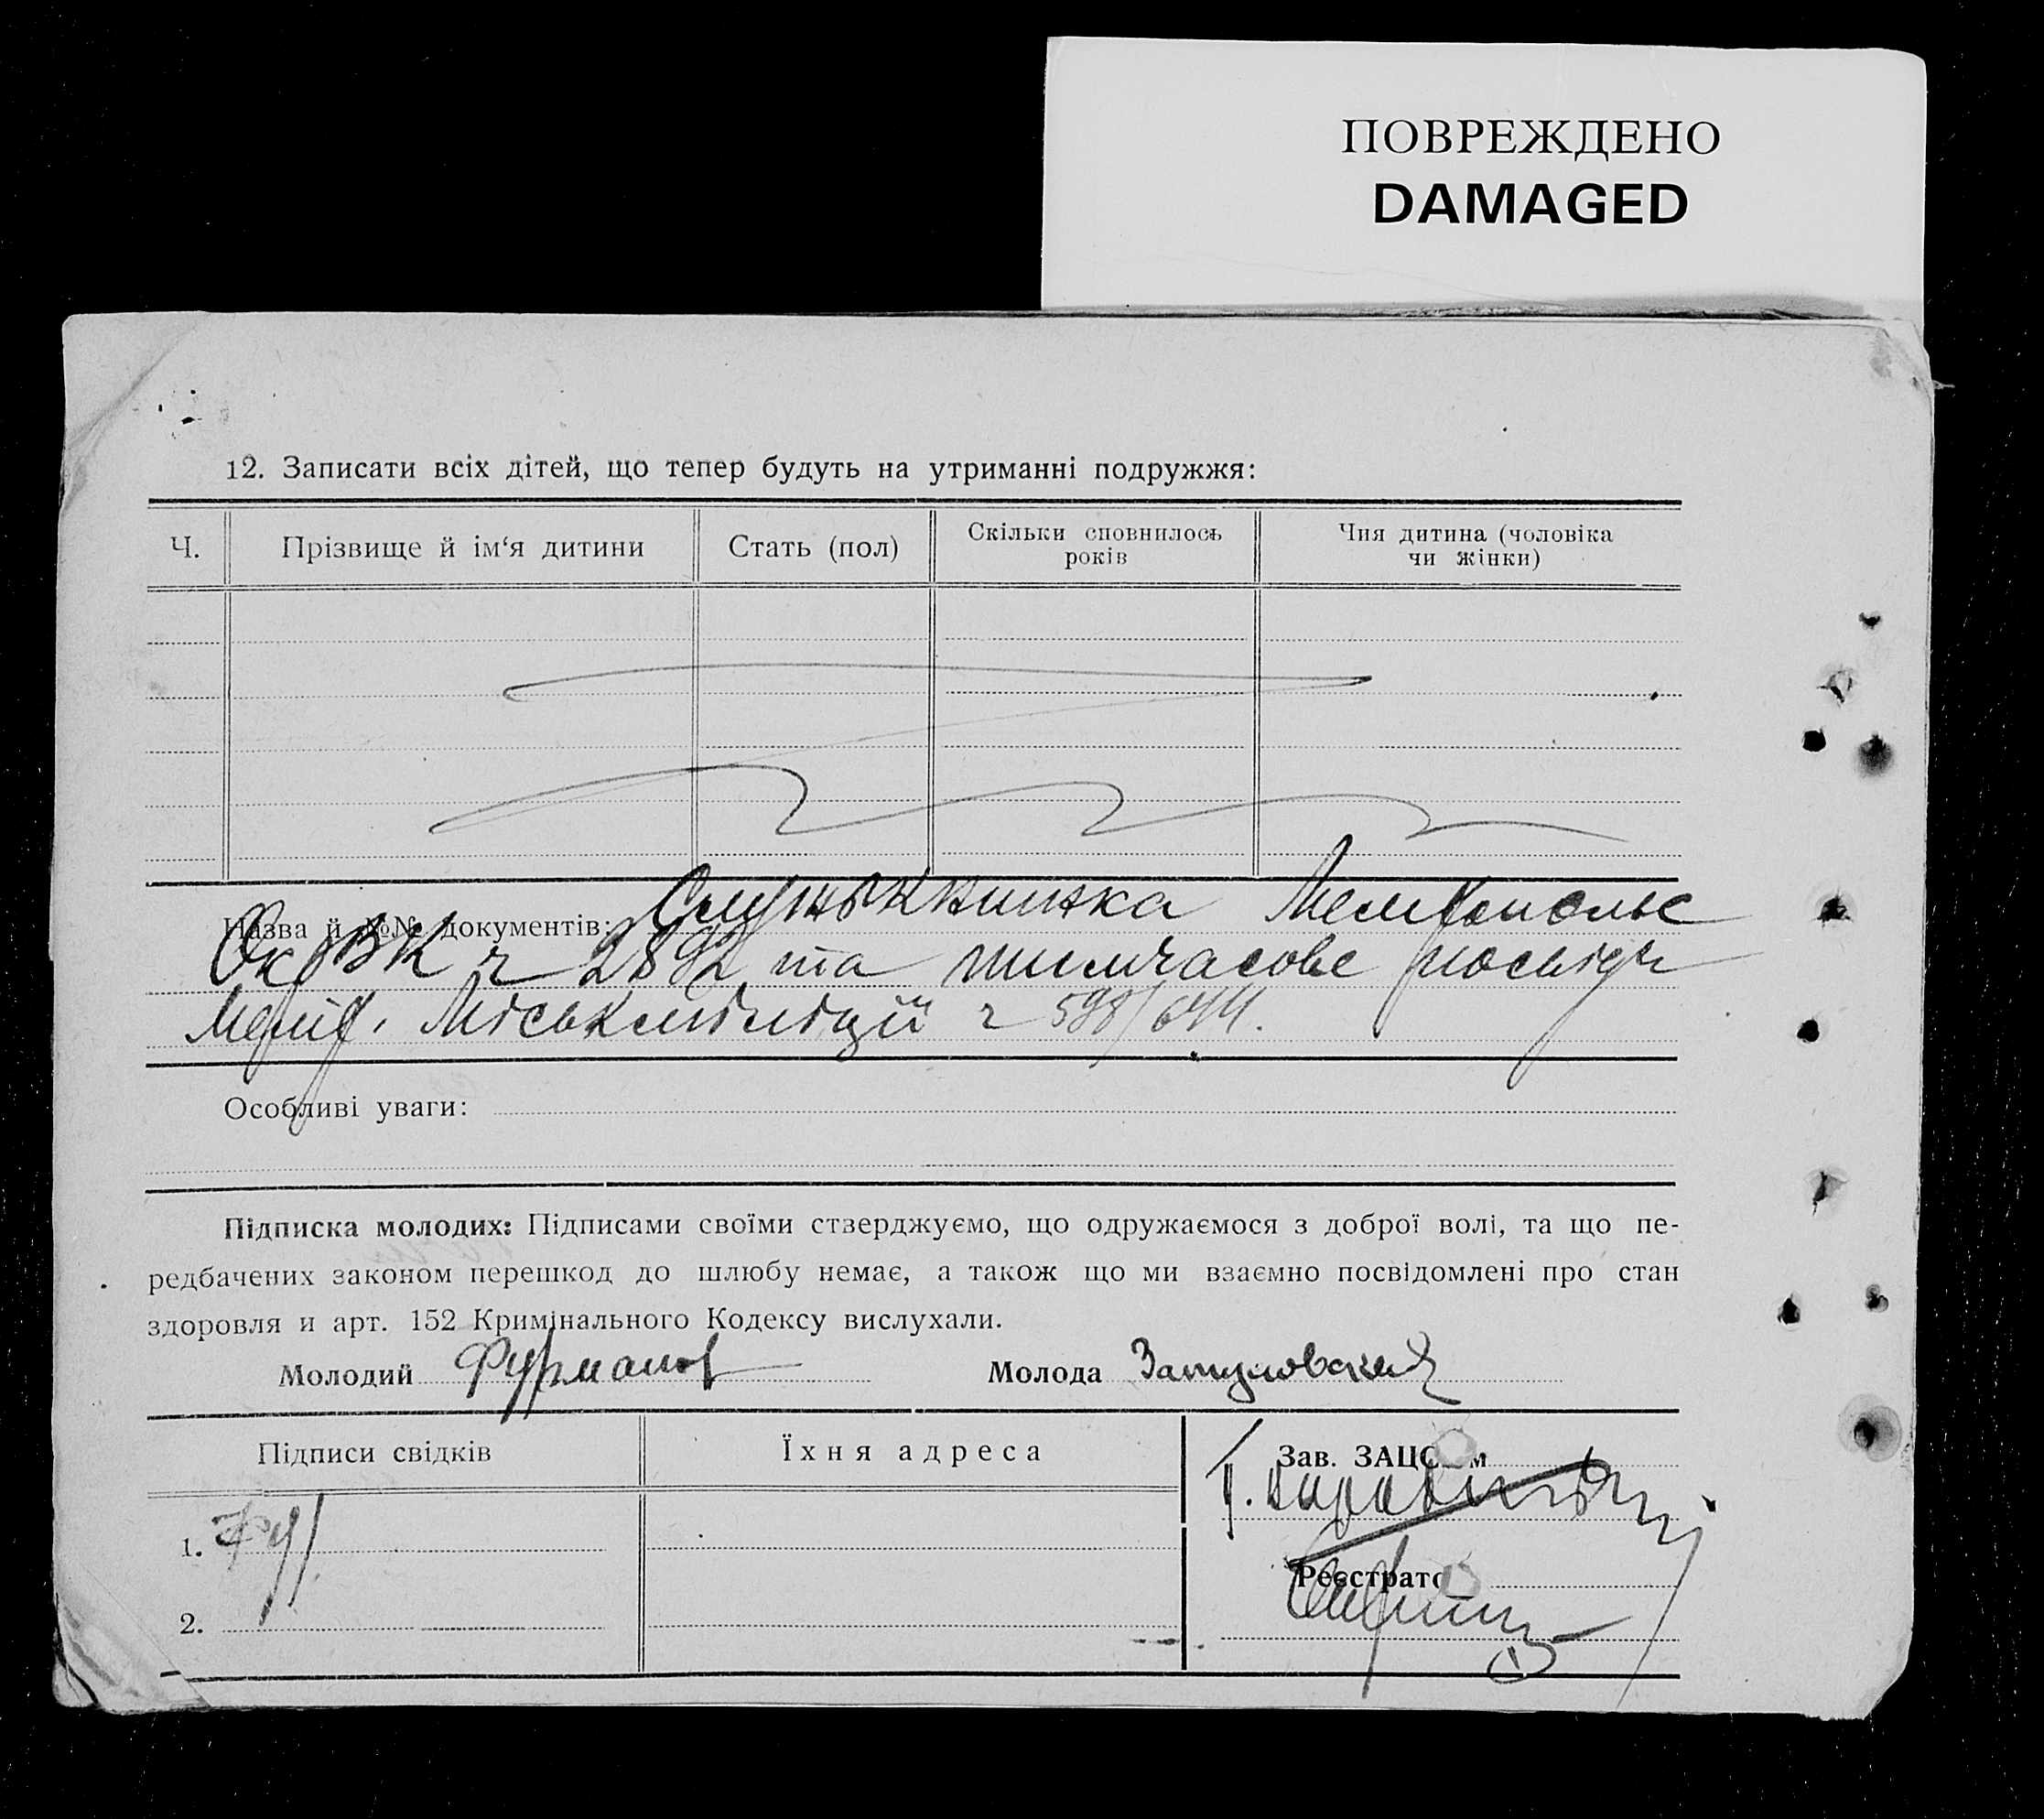 ПОВРЕЖДЕНО
DAMAGED
12. Записати всіх дітей, що тепер будуть на утриманні подружжя:
Ч. Прізвище й ім‘я дитини Стать (пол) Скільки сповнилось років Чия дитина (чоловіка чи жінки)
Назва й №№ документів: Служкнижка
ОкрВК ч 2892 та тимчасове посвідч
Меліт. Міськміліції ч 598/644.
Особливі уваги:
Підписка молодих: Підписами своїми стверджуємо, що одружаємося з доброї волі, та що пе-
редбачених законом перешкод до шлюбу немає, а також що ми взаємно посвідомлені про стан
здоровля и арт. 152 Кримінального Кодексу вислухали.
Молодий Фурманов Молода Затуловская
Підписи свідків Їхня адреса Зав. ЗАЦС м
1.
Реєстрато
2.